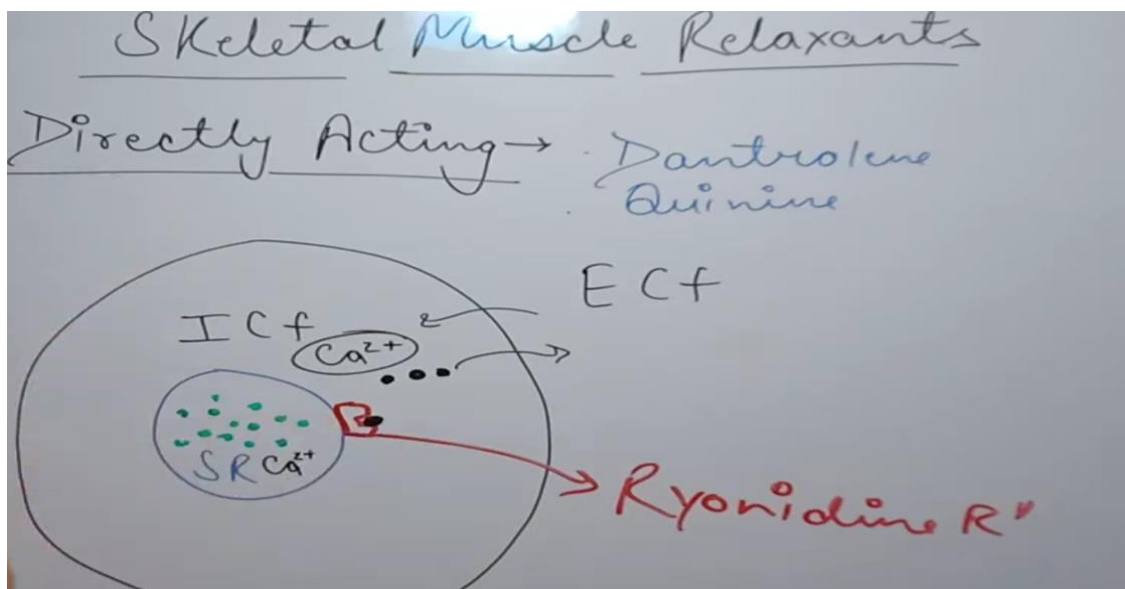 Skeletal Muscle Relaxants
Directly Acting → Dantrolene
Quinine
ECf
ICf
Ca²⁺
SR Ca²⁺
Ryonidine R'